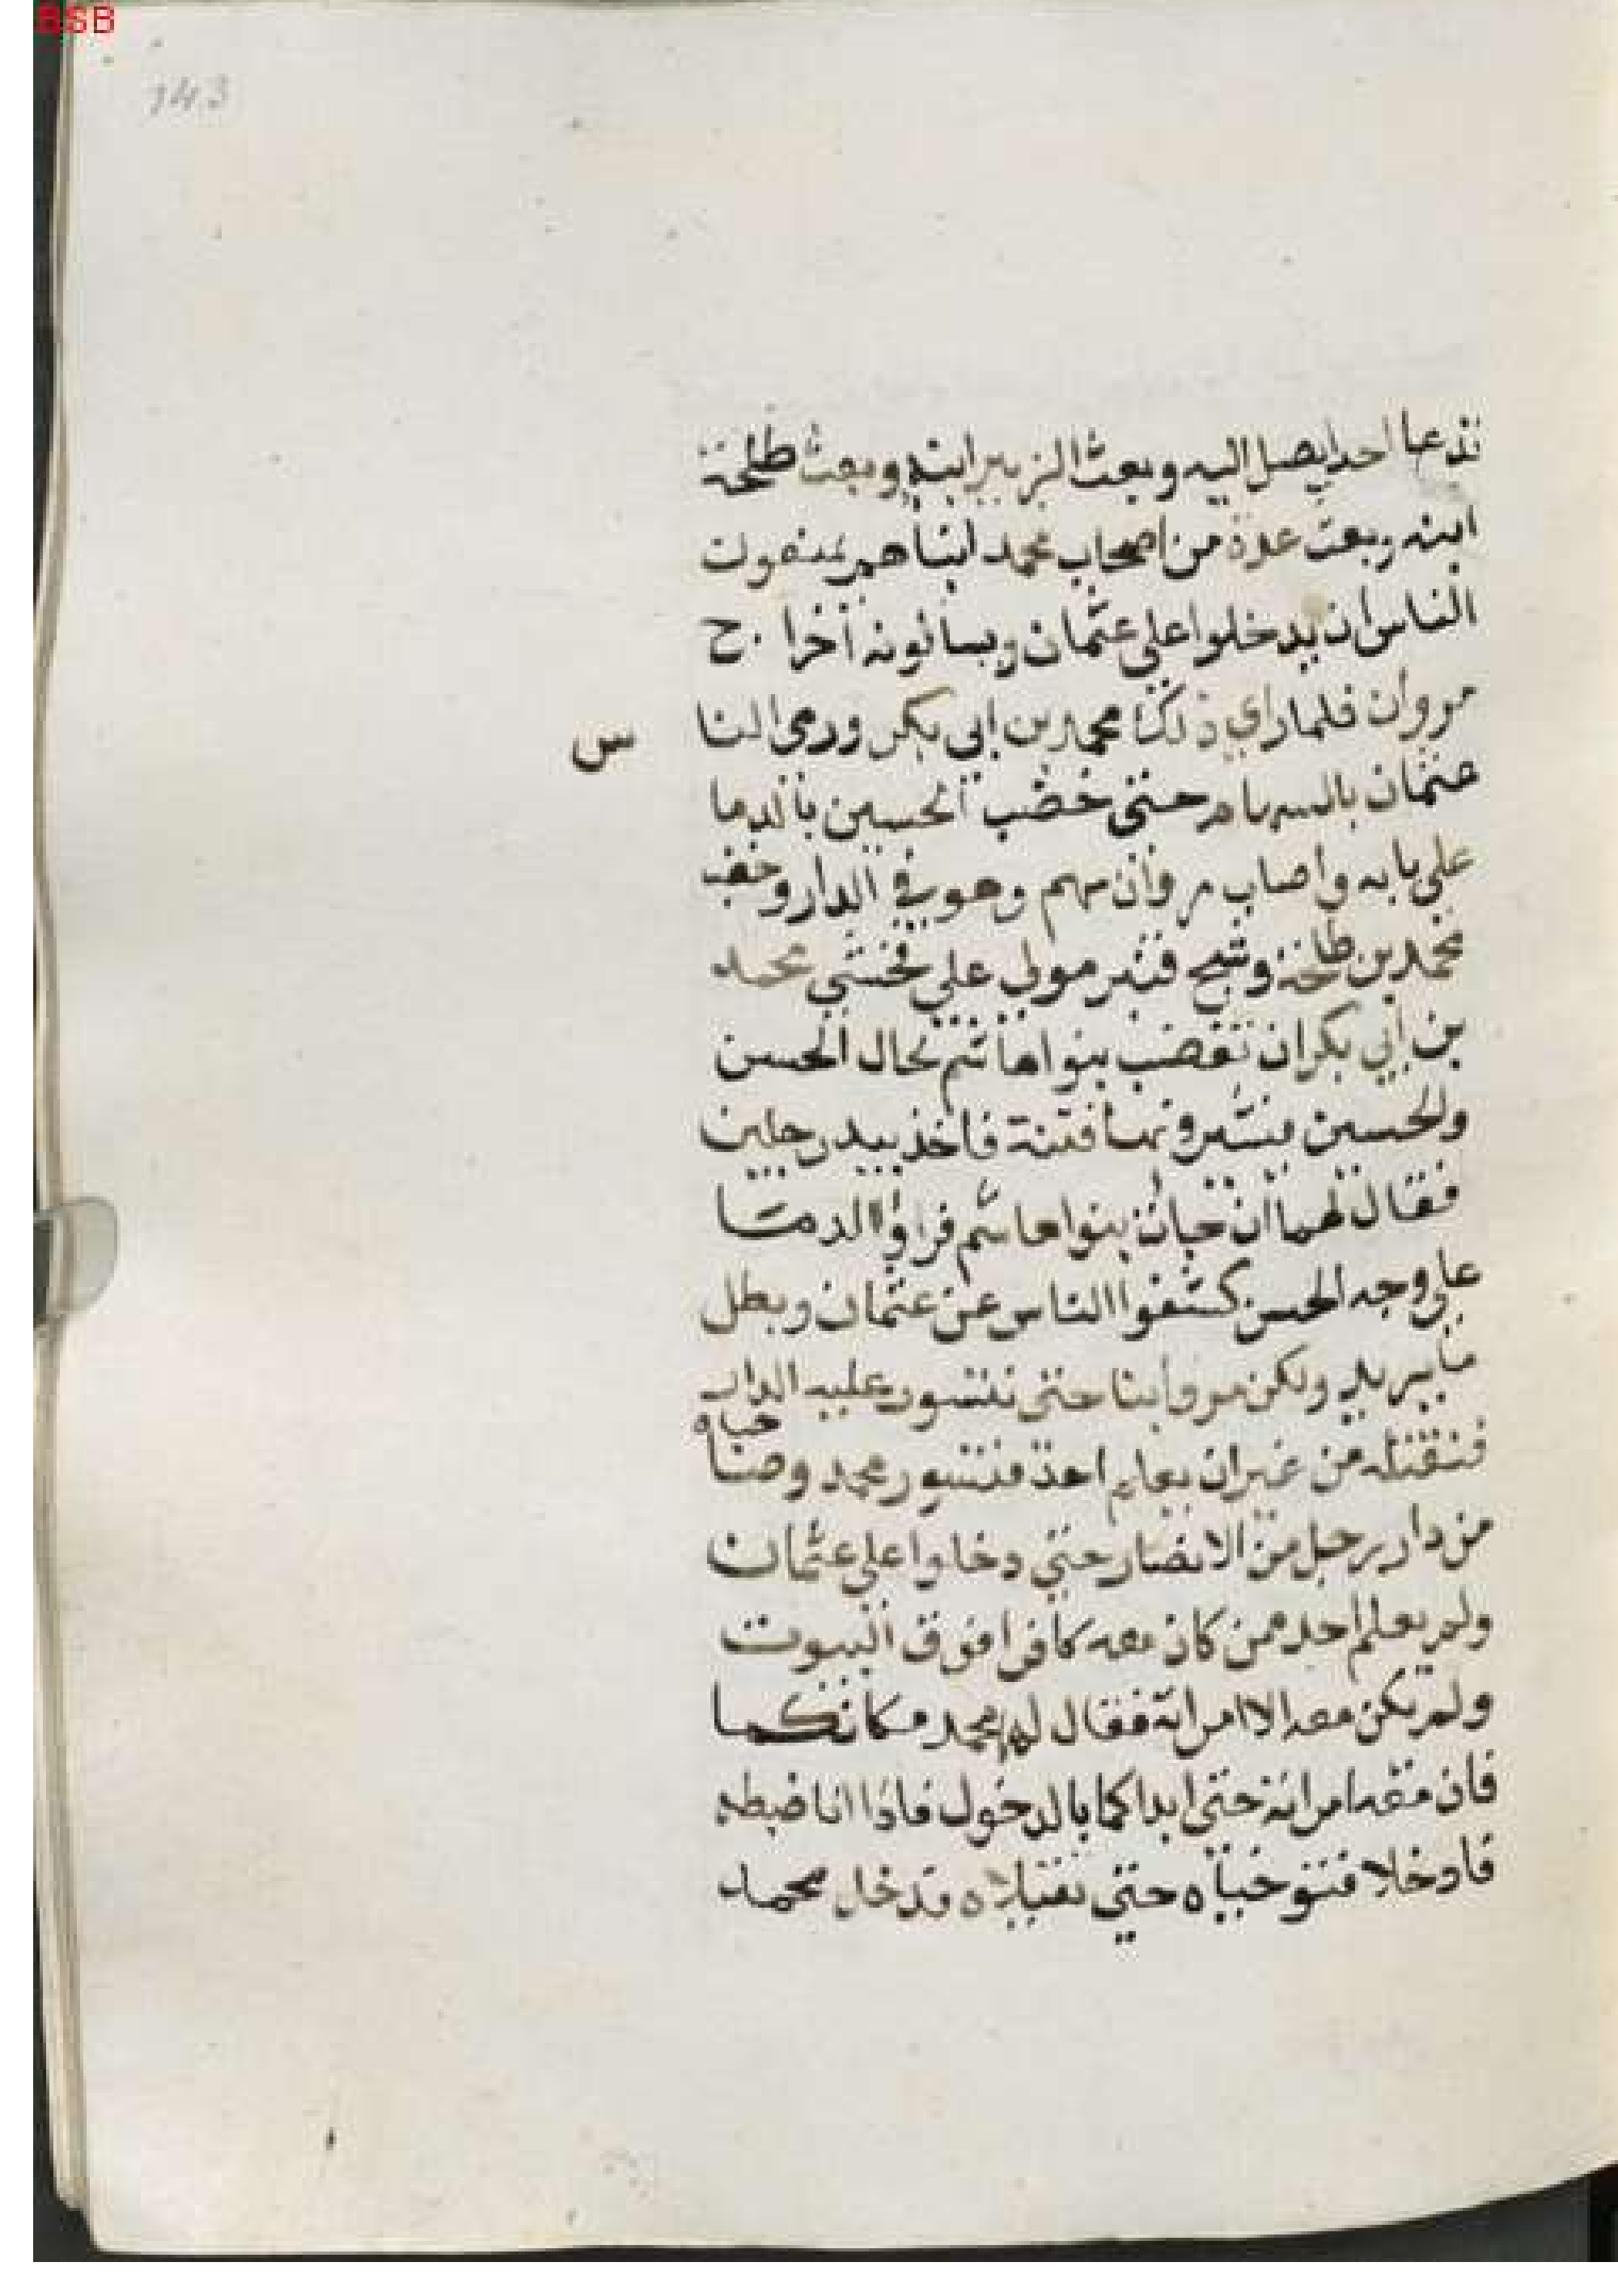 BSB
143
تدعا احدا يصل اليه وبعث الزبير ابنه وبعث طلحة
ابنه وبعث عدة من اصحاب محمد ابناهم يمنعون
الناس ان يدخلوا على عثمان ويسالونه اخراج
مروان فلما راي ذلك محمد بن ابي بكر ورمى النا س
عثمان بالسهام حتى خضب الحسين بالدما
على بابه واصاب مروان سهم وهو في الدار وخضب
محمد بن طلحة وشج قنبر مولى علي فخشي محمد
بن ابي بكر ان تغضب بنوا هاشم لحال الحسن
والحسين فيثيرونها فتنة فاخذ بيد رجلين
فقال لهما ان جات بنوا هاشم فراوا الدما
على وجه الحسن كشفوا الناس عن عثمان وبطل
ما يريد ولكن مروا بنا حتى نتسور عليه الدار
فنقتله من غير ان يعلم احد فتسور محمد وصاحباه
من دار رجل من الانصار حتي دخلوا على عثمان
ولم يعلم احد ممن كان معه كانوا فوق البيوت
ولم يكن معه الا امراته فقال لهما محمد مكانكما
فان معه امراته حتى ابداكما بالدخول فاذا انا ضبطه
فادخلا فتوخباه حتي تقتلاه فدخل محمد